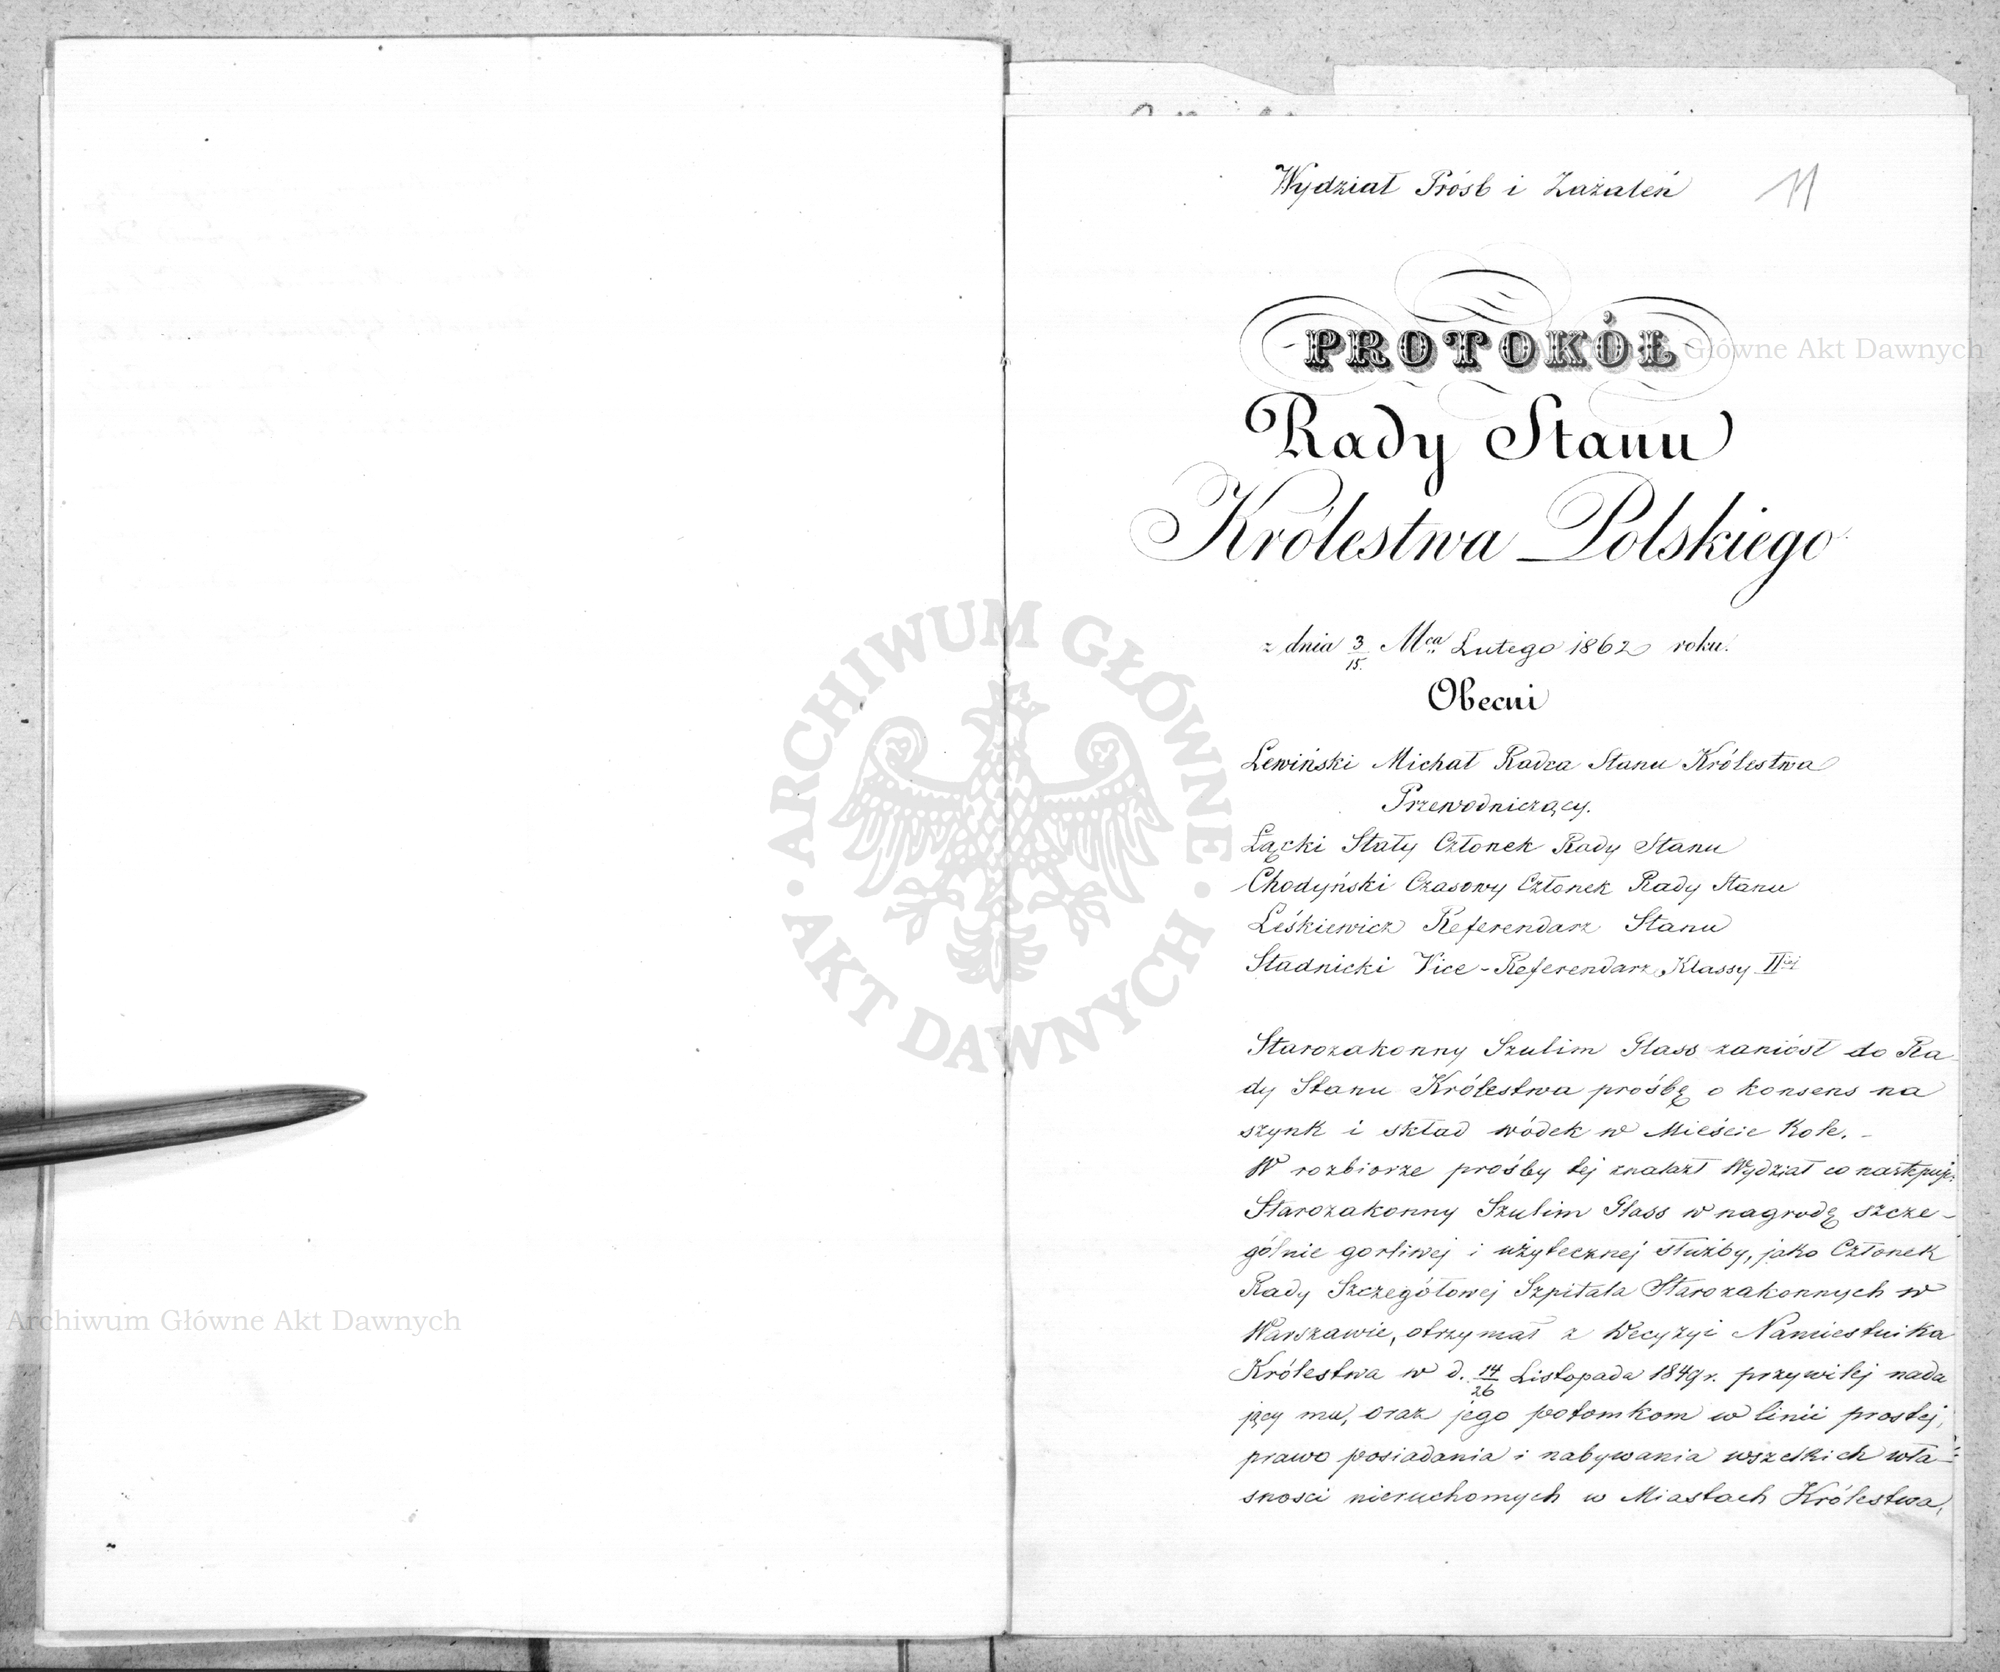 Wydział Próśb i Zażaleń
11
PROTOKÓŁ
Rady Stanu
Królestwa Polskiego
z dnia 3/15. Mca Lutego 1862 roku.
Obecni
Lewiński Michał Radca Stanu Królestwa
Przewodniczący.
Łącki Stały Członek Rady Stanu
Chodyński Czasowy Członek Rady Stanu
Leśkiewicz Referendarz Stanu
Stadnicki Vice-Referendarz Klassy IIiej
Starozakonny Szulim Glass zaniósł do Ra-
dy Stanu Królestwa prośbę o konsens na
szynk i skład wódek w Mieście Kole. -
W rozbiorze prośby tej znalazł Wydział co następuje:
Starozakonny Szulim Glass w nagrodę szcze-
gólnie gorliwej i użytecznej służby, jako Członek
Rady Szczegółowej Szpitala Starozakonnych w
Warszawie, otrzymał z Decyzyi Namiestnika
Królestwa w d. 14/26 Listopada 1849 r. przywilej nada
jący mu, oraz jego potomkom w linii prostej,
prawo posiadania i nabywania wszelkich wła-
sności nieruchomych w Miastach Królestwa,
ARCHIWUM GŁÓWNE AKT DAWNYCH
Archiwum Główne Akt Dawnych
Archiwum Główne Akt Dawnych